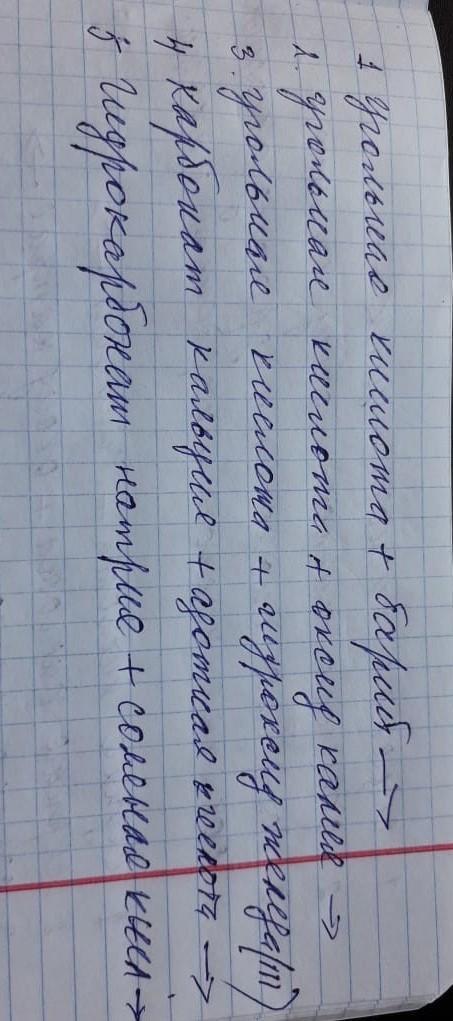 1 угольная кислота + барий →
2. угольная кислота + оксид калия →
3. угольная кислота + гидроксид железа (III)
4 Карбонат кальция + азотная кислота →
5 Гидрокарбонат натрия + соленая кисл →